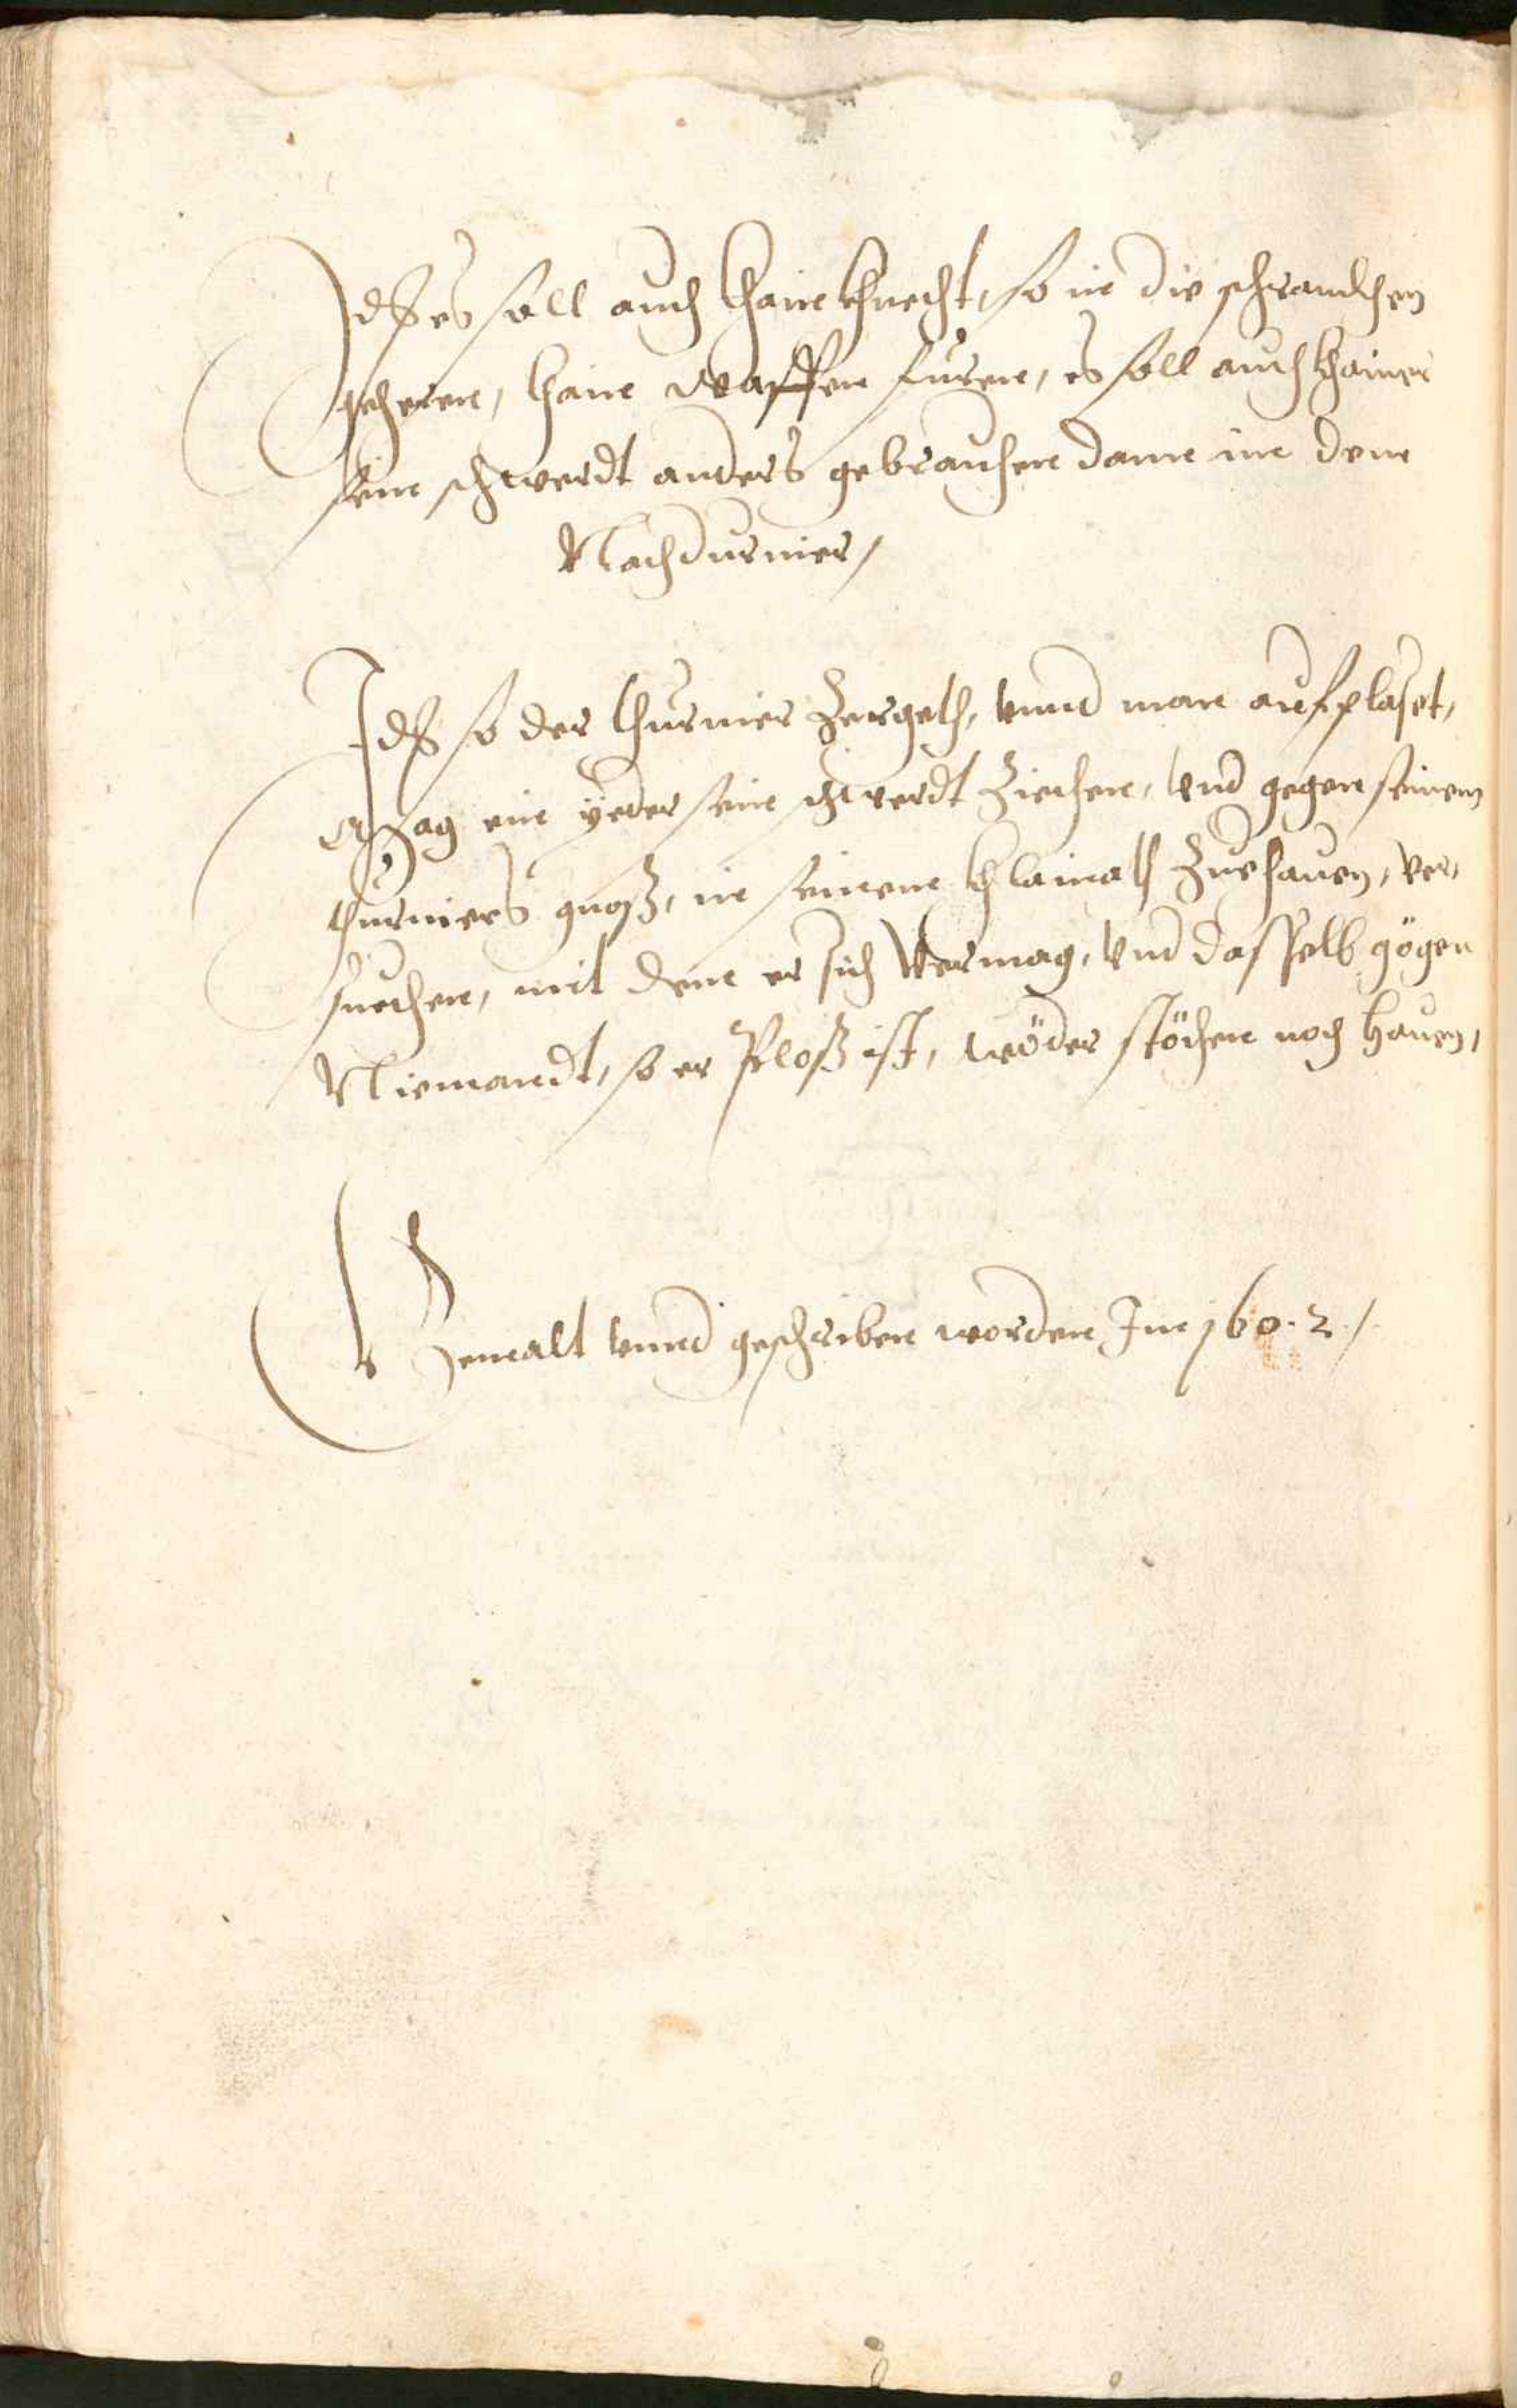 Jtß es soll auch khain khnecht, so in die schranckhen
gehern, khain waffen fuern, es soll auch khainer
sein schwerdt anders gebrauchen dann inn denn
Nachdurnier/
Jtß so der thurnier Zergeth, vnnd man aufplaset,
Mag ein yeder sein schwerdt Ziechen, vnd gegen seinem
thurniers gnoß, in seinem khlainath Zuehauen, ver,
suechen, mit denn er sich vermag, vnd dasselb gögen
Niemandt, so er Ploß ist, wöder stöchen noch hauen,
Gemalt vnnd geschriben worden Im 160.2./